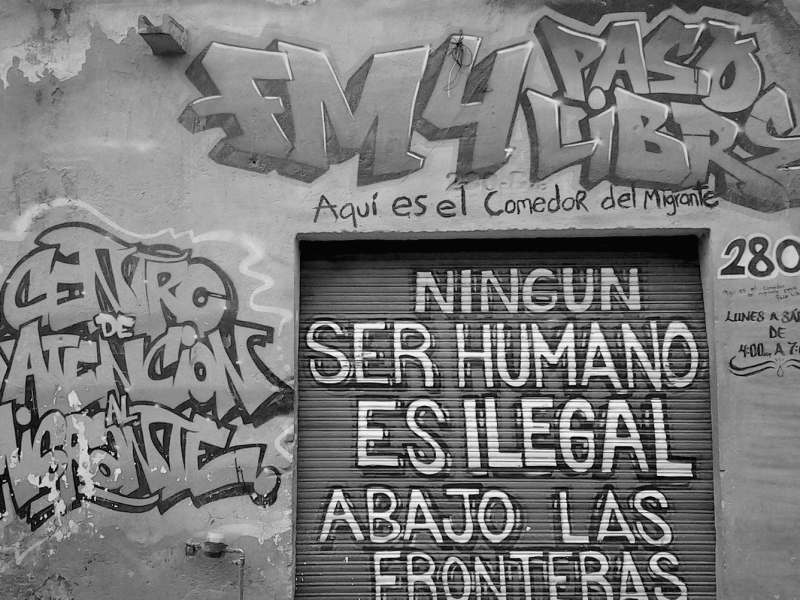 FM4 PASO
LIBRE
Aquí es el Comedor del Migrante
CENTRO
DE
ATENCION
AL
MIGRANTE
NINGUN
SER HUMANO
ES ILEGAL
ABAJO LAS
FRONTERAS
280
LUNES A
DE
4:00 A 7: